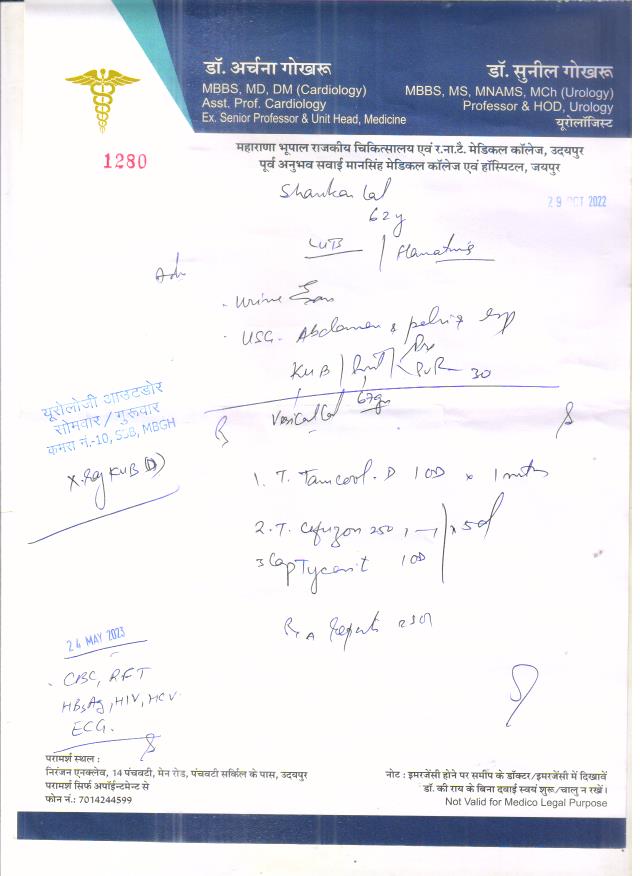 डॉ. अर्चना गोखरू
MBBS, MD, DM (Cardiology)
Asst. Prof. Cardiology
Ex. Senior Professor & Unit Head, Medicine
डॉ. सुनील गोखरू
MBBS, MS, MNAMS, MCh (Urology)
Professor & HOD, Urology
यूरोलॉजिस्ट
1280
महाराणा भूपाल राजकीय चिकित्सालय एवं र.ना.टै. मेडिकल कॉलेज, उदयपुर
पूर्व अनुभव सवाई मानसिंह मेडिकल कॉलेज एवं हॉस्पिटल, जयपुर
Shankar lal
29 OCT 2022
62y
Adv
Urine
USG. Abdomen & pelvis
KUB
PVR 30
Vesical Cal 67gm
यूरोलोजी आउटडोर
सोमवार / गुरूवार
कमरा नं.-10, SSB, MBGH
X.Ray KUB
1. T. D 1 OD x 1
2. T. 250 x 5d
3 Cap 1 OD
Reports
24 MAY 2023
CBC, RFT
HBsAg, HIV, HCV
ECG.
परामर्श स्थल :
निरंजन एनक्लेव, 14 पंचवटी, मेन रोड, पंचवटी सर्किल के पास, उदयपुर
परामर्श सिर्फ अपॉईन्टमेन्ट से
फोन नं.: 7014244599
नोट : इमरजेंसी होने पर समीप के डॉक्टर/इमरजेंसी में दिखावें
डॉ. की राय के बिना दवाई स्वयं शुरू/चालु न रखें।
Not Valid for Medico Legal Purpose